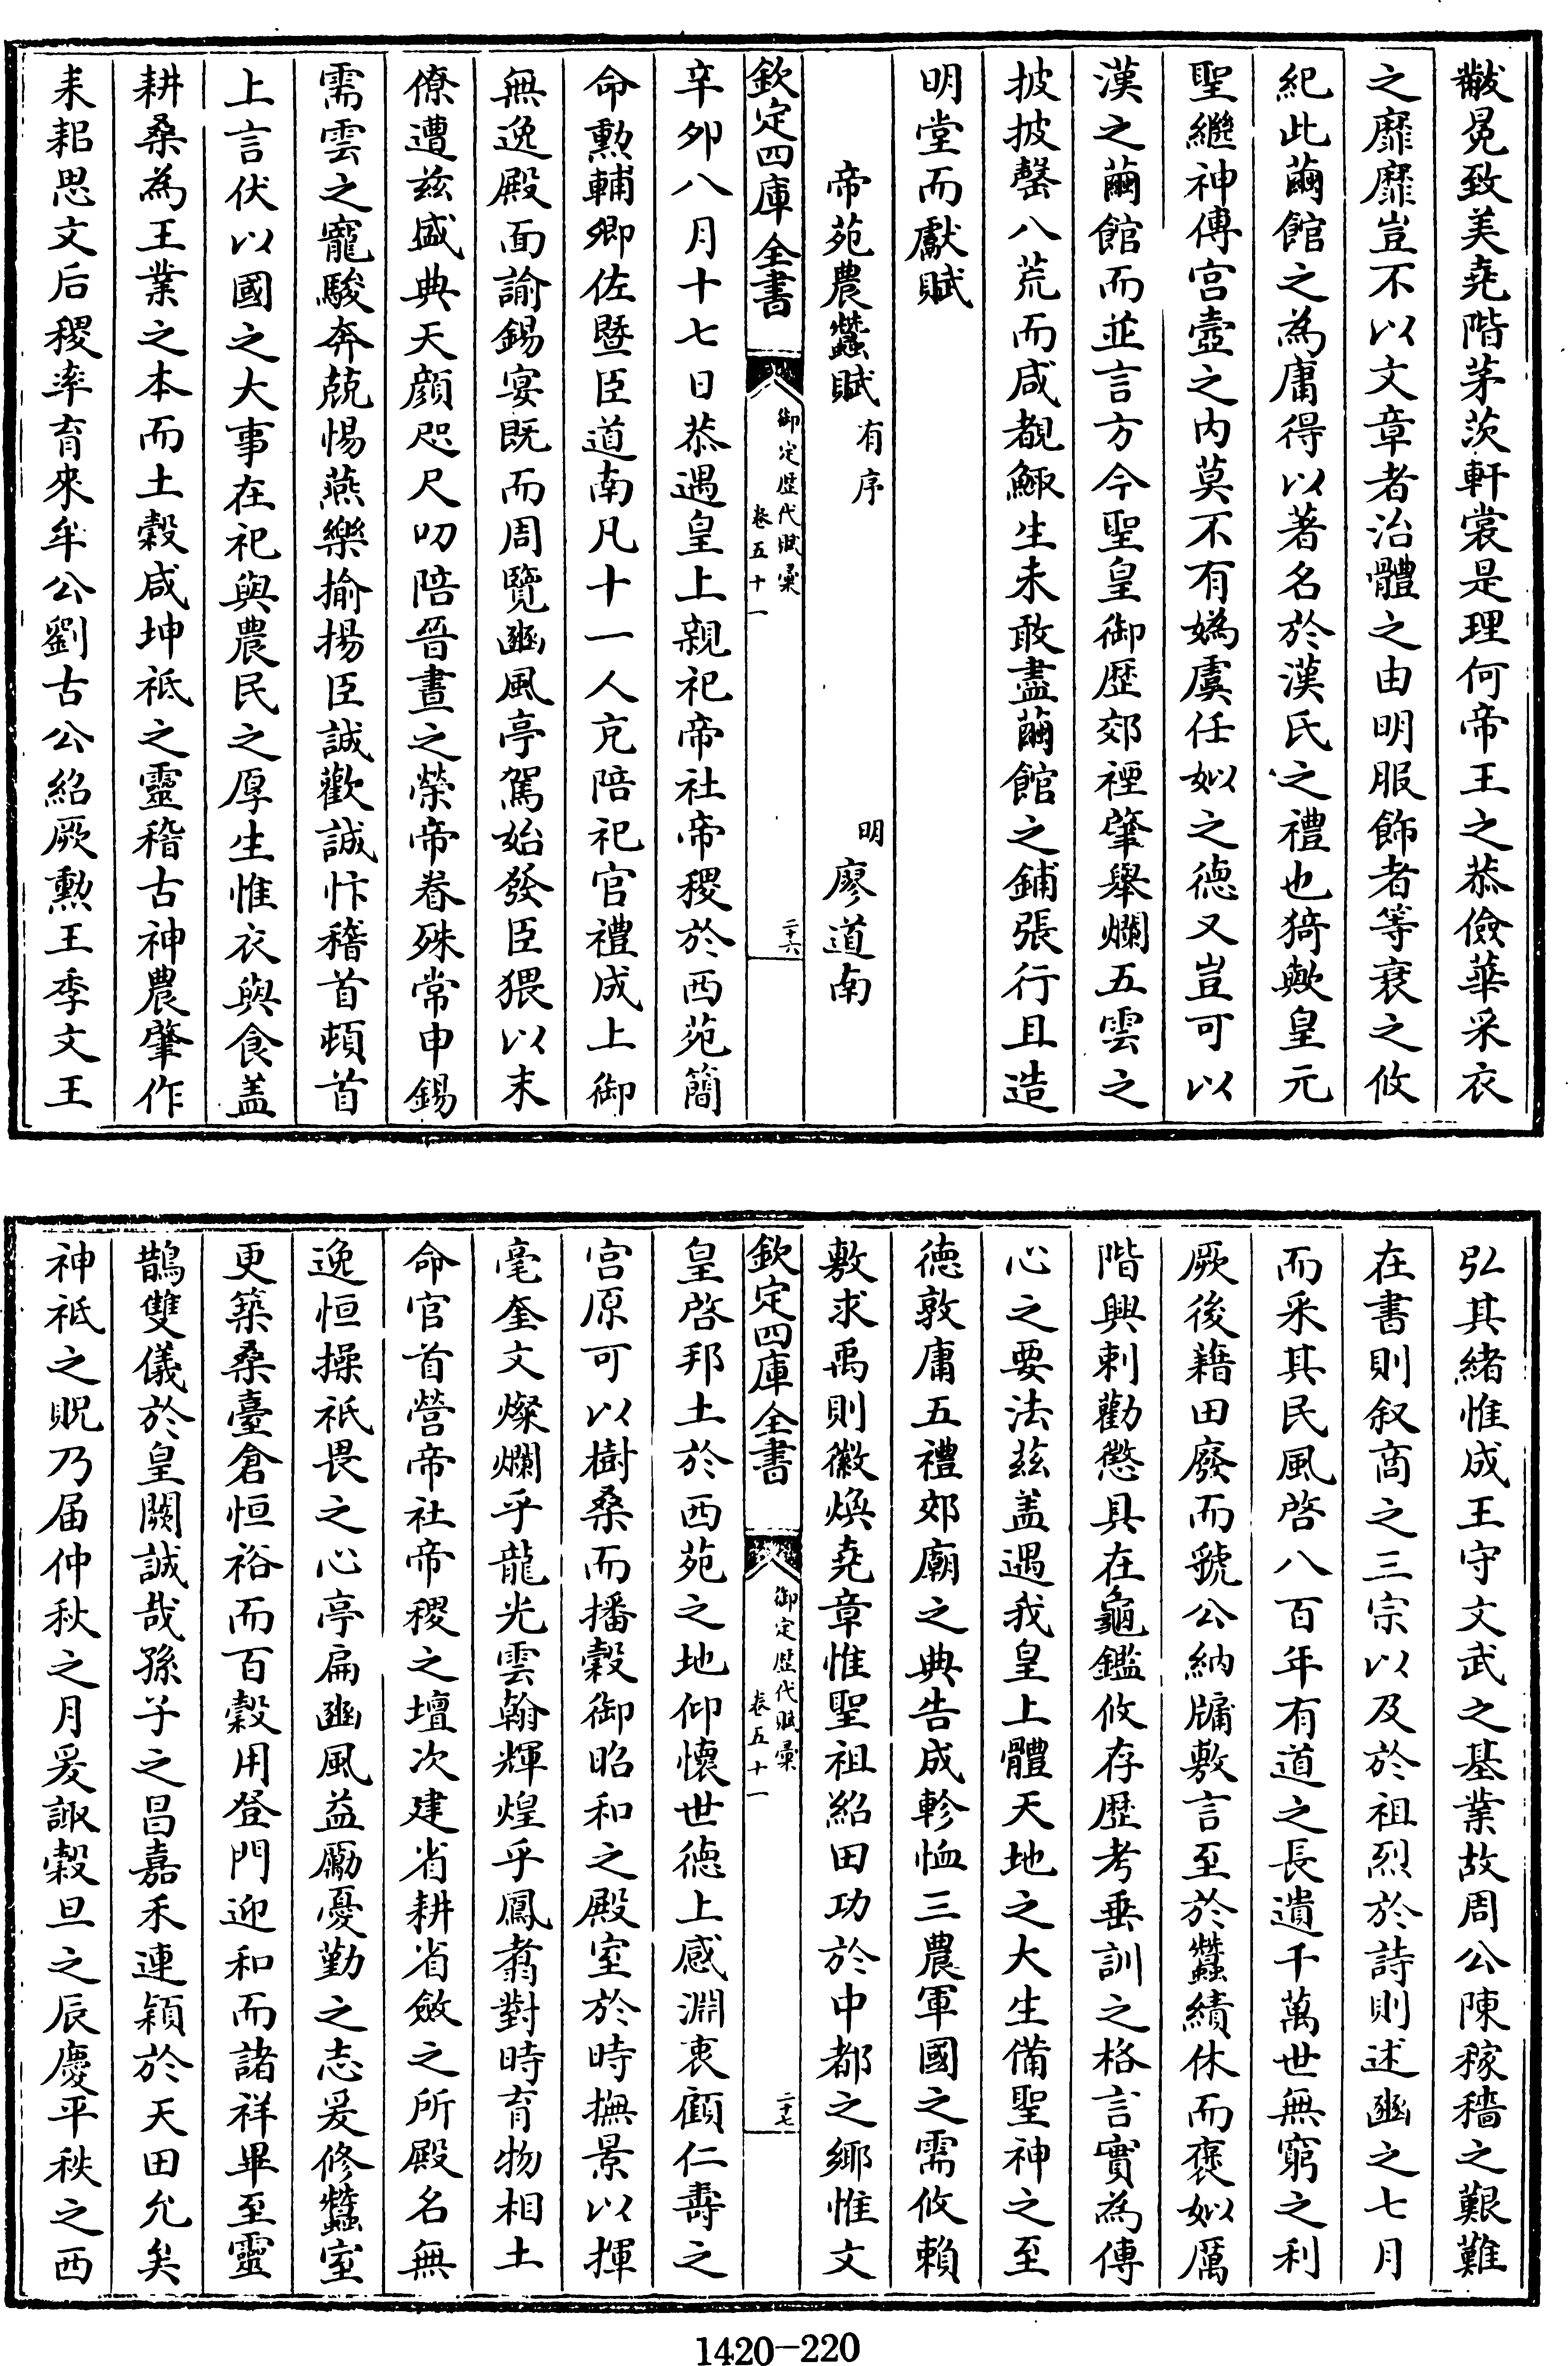 黻冕致美堯階茅茨軒裳是理何帝王之恭儉華采衣
之靡靡豈不以文章者治體之由明服飾者等衰之攸
紀此繭館之為庸得以著名於漢氏之禮也猗歟皇元
聖繼神傳宫壼之内莫不有嬀虞任姒之德又豈可以
漢之繭館而並言方今聖皇御歴郊禋肇舉爛五雲之
披披罄八荒而咸覩鯫生未敢盡繭館之鋪張行且造
明堂而獻賦
帝苑農蠶賦有序 明廖道南
欽定四庫全書 御定歴代賦彙 卷五十一 二十六
辛夘八月十七日恭遇皇上親祀帝社帝稷於西苑簡
命勲輔卿佐暨臣道南凡十一人充陪祀官禮成上御
無逸殿面諭錫宴既而周覽豳風亭駕始發臣猥以末
僚遭兹盛典天顔咫尺叨陪晉晝之榮帝眷殊常申錫
需雲之寵駿奔兢惕燕樂揄揚臣誠歡誠忭稽首頓首
上言伏以國之大事在祀與農民之厚生惟衣與食盖
耕桑為王業之本而土穀咸坤祗之靈稽古神農肇作
耒耜思文后稷率育來牟公劉古公紹厥勲王季文王
弘其緒惟成王守文武之基業故周公陳稼穡之艱難
在書則叙商之三宗以及於祖烈於詩則述豳之七月
而采其民風啓八百年有道之長遺千萬世無窮之利
厥後藉田廢而虢公納牖敷言至於蠶績休而褒姒厲
階興刺勸懲具在龜鑑攸存歴考垂訓之格言實為傳
心之要法兹盖遇我皇上體天地之大生備聖神之至
德敦庸五禮郊廟之典告成軫恤三農軍國之需攸賴
敷求禹則徽煥堯章惟聖祖紹田功於中都之鄉惟文
欽定四庫全書 御定歴代賦彙 卷五十一 二十七
皇啓邦土於西苑之地仰懷世德上感淵衷顧仁壽之
宫原可以樹桑而播穀御昭和之殿室於時撫景以揮
毫奎文燦爛乎龍光雲翰輝煌乎鳳翥對時育物相土
命官首營帝社帝稷之壇次建省耕省斂之所殿名無
逸恒操祗畏之心亭扁豳風益勵憂勤之志爰修蠶室
更築桑臺倉恒裕而百穀用登門迎和而諸祥畢至靈
鵲雙儀於皇闕誠哉孫子之昌嘉禾連穎於天田允矣
神祗之貺乃届仲秋之月爰諏穀旦之辰慶平秩之西
1420-220